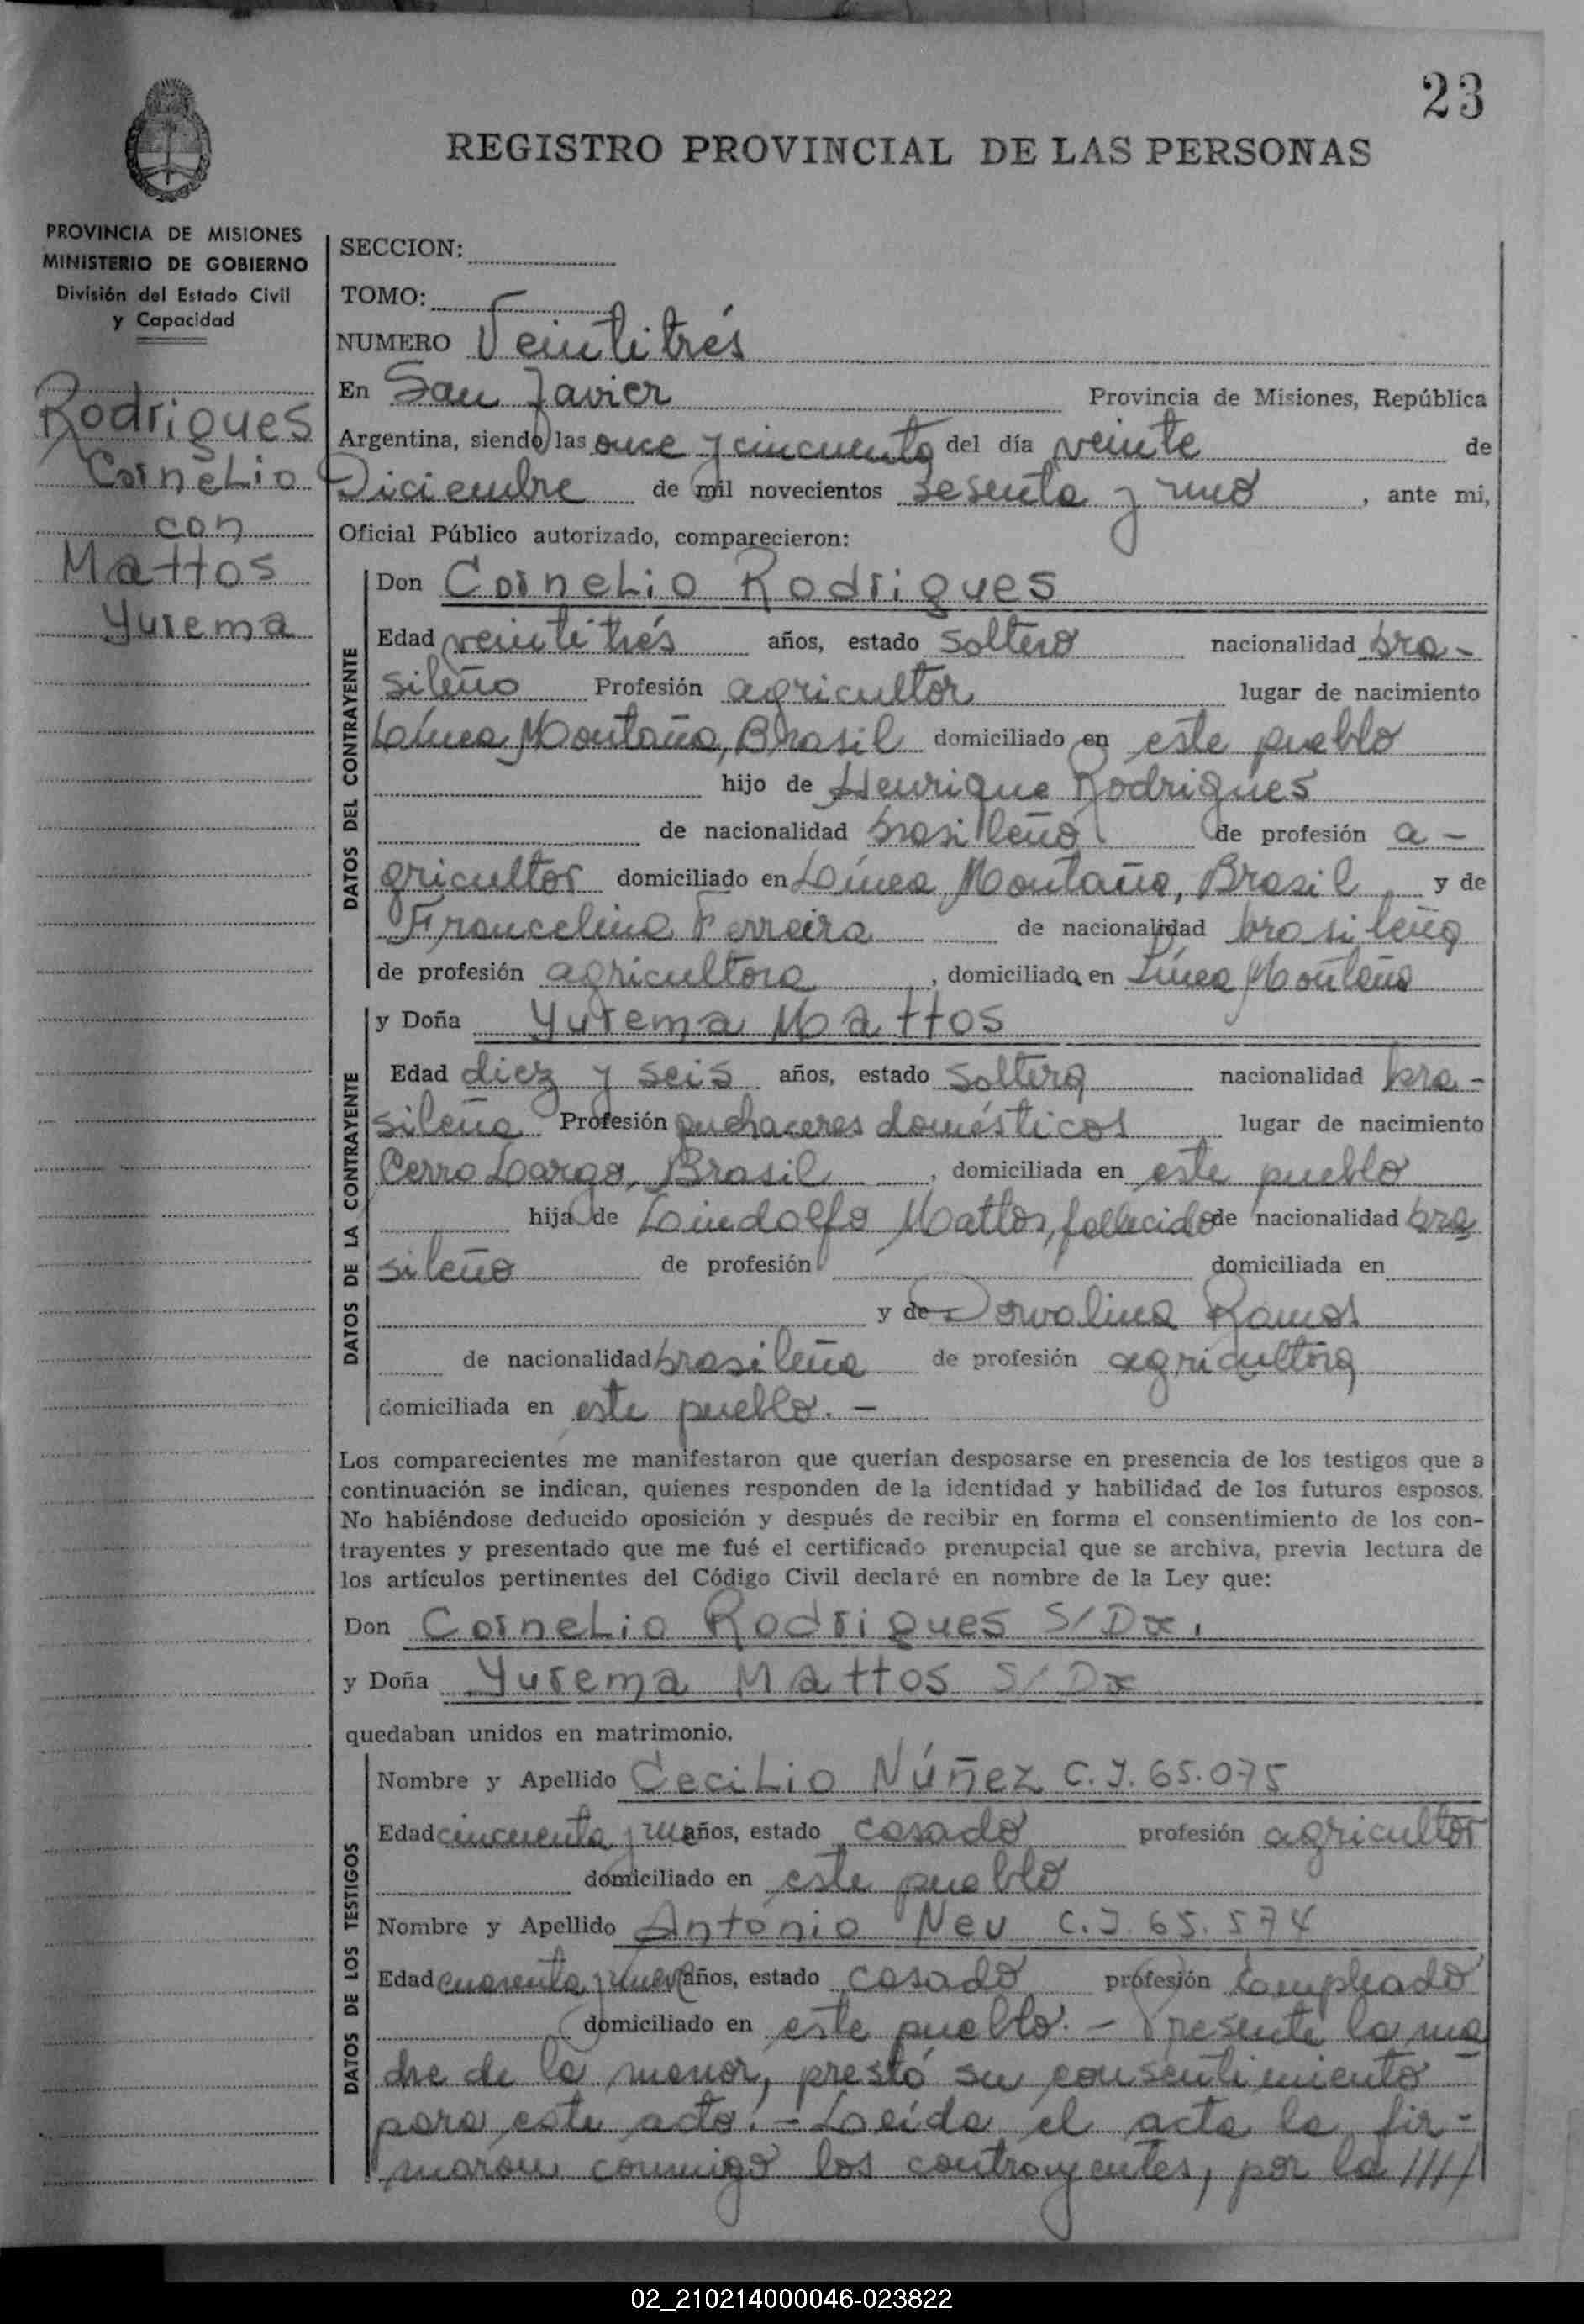 23
REGISTRO PROVINCIAL DE LAS PERSONAS
PROVINCIA DE MISIONES
MINISTERIO DE GOBIERNO
División del Estado Civil
y Capacidad
Rodrigues
Cornelio
con
Mattos
Yurema
SECCION:
TOMO:
NUMERO Veintitrés
En San Javier Provincia de Misiones, República
Argentina, siendo las once y cincuenta del día veinte de
Diciembre de mil novecientos sesenta y uno, ante mi,
Oficial Público autorizado, comparecieron:
DATOS DEL CONTRAYENTE
Don Cornelio Rodrigues
Edad veintitrés años, estado soltero nacionalidad bra-
sileño Profesión agricultor lugar de nacimiento
Línea Montaña, Brasil domiciliado en este pueblo
hijo de Henrique Rodrigues
de nacionalidad brasileño de profesión a-
gricultor domiciliado en Línea Montaña, Brasil, y de
Francelina Ferreira de nacionalidad brasileña
de profesión agricultora, domiciliada en Línea Montaña
DATOS DE LA CONTRAYENTE
y Doña Yurema Mattos
Edad diez y seis años, estado soltera nacionalidad bra-
sileña Profesión quehaceres domésticos lugar de nacimiento
Cerro Largo, Brasil, domiciliada en este pueblo
hija de Lindolfo Mattos, fallecido de nacionalidad bra
sileño de profesión domiciliada en
y de Dorvalina Ramos
de nacionalidad brasileña de profesión agricultora
domiciliada en este pueblo. -
Los comparecientes me manifestaron que querían desposarse en presencia de los testigos que a
continuación se indican, quienes responden de la identidad y habilidad de los futuros esposos.
No habiéndose deducido oposición y después de recibir en forma el consentimiento de los con-
trayentes y presentado que me fué el certificado prenupcial que se archiva, previa lectura de
los artículos pertinentes del Código Civil declaré en nombre de la Ley que:
Don Cornelio Rodrigues S/D
y Doña Yurema Mattos S/D
quedaban unidos en matrimonio.
DATOS DE LOS TESTIGOS
Nombre y Apellido Cecilio Núñez C.I. 65.075
Edad cincuenta y un años, estado casado profesión agricultor
domiciliado en este pueblo
Nombre y Apellido Antonio Neu C.I. 65.574
Edad cuarenta y nueve años, estado casado profesión empleado
domiciliado en este pueblo. - Presente la ma
dre de la menor, prestó su consentimiento
para este acto. - Leída el acta la fir-
maron conmigo los contrayentes, por la ////
02_210214000046-023822